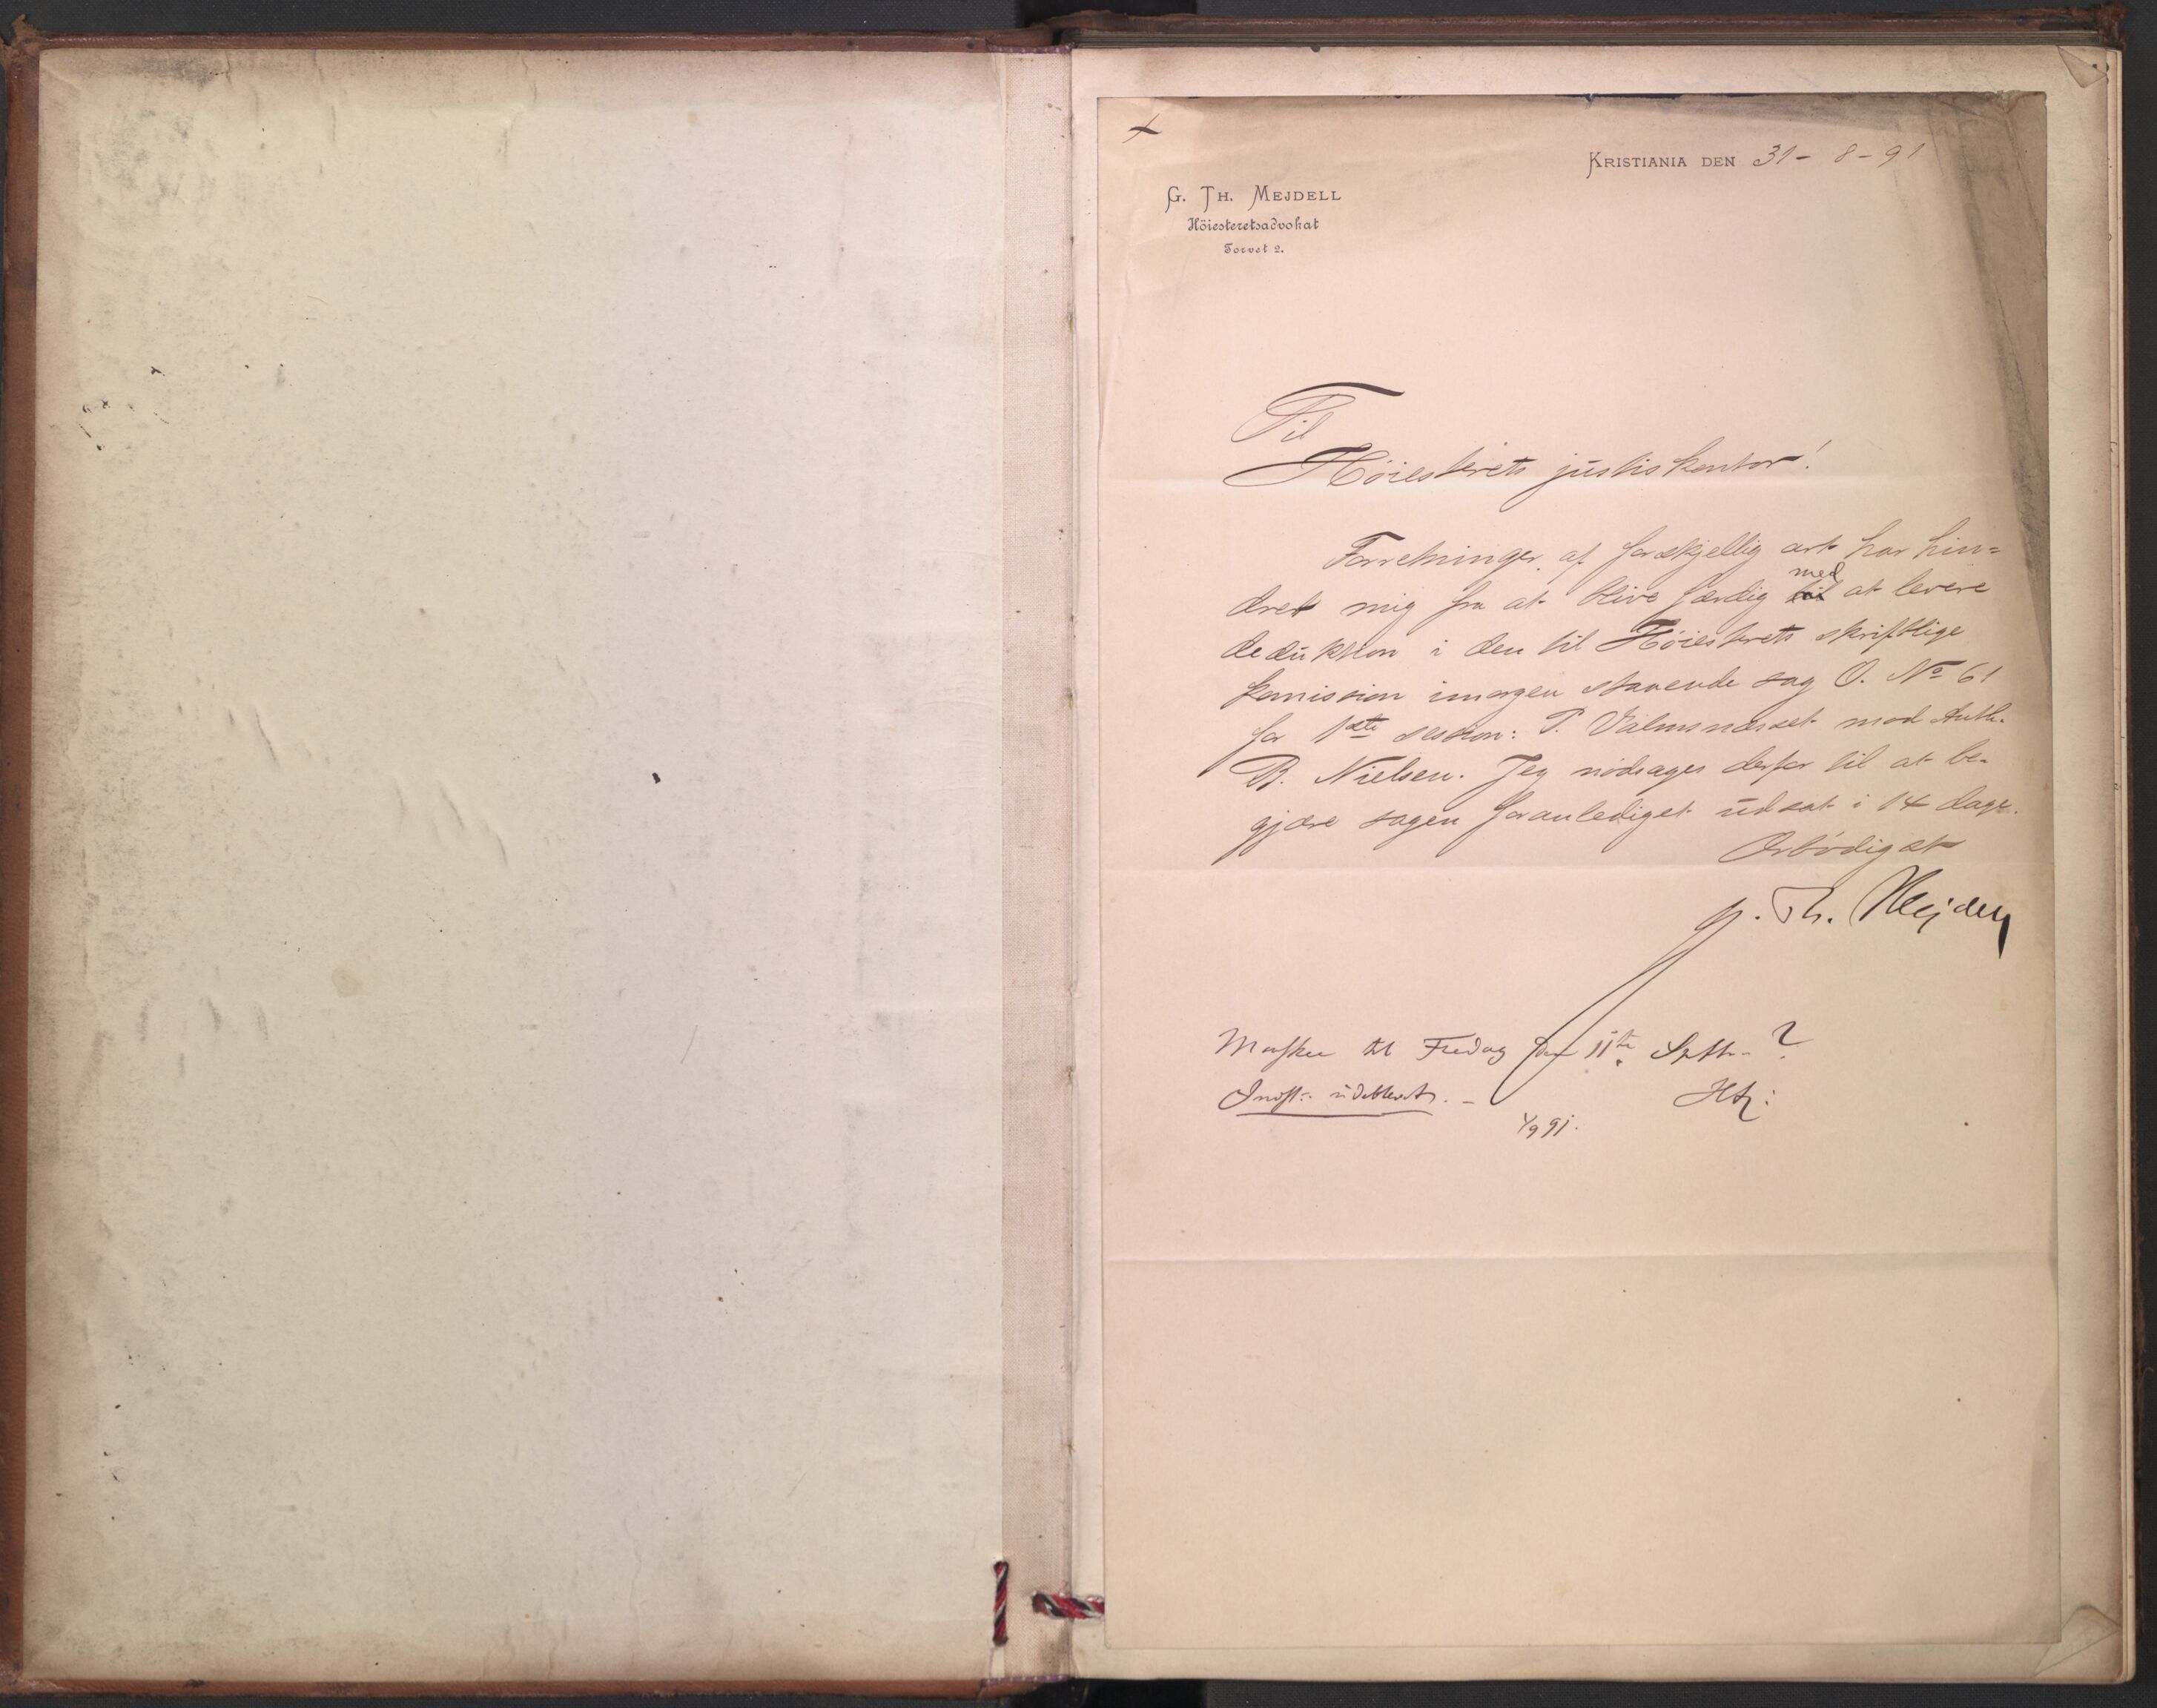 Kristiania den 31-8-91
G. Th. Mejdell
Höiesteretsadvokat
Torvet 2.
Til
Höiesterets justiskontor!
Forretninger af forskjellig art har hin=
dret mig fra at blive færdig med at levere
deduktion i den til Höiesterets skriftlige
komission imorgen staaende sag O. No 61
for 1ste session: P. Valmsnæsset mod Anth.
B. Nielsen. Jeg nödsages derfor til at be-
gjære sagen foranlediget udsat i 14 dage.
Ærbödigst
G. Th. Mejdell
Maaske til Fredag den 11te Septb. ?
udeblevet. -
1/9 91.